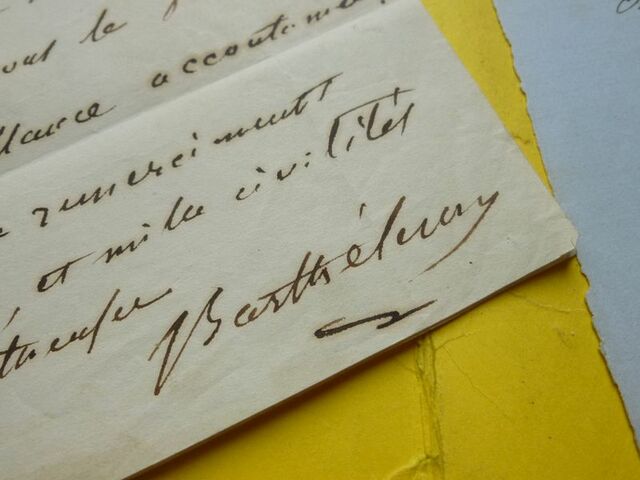 vous le
accoutumé
remerciments
et mille civilités
Barthélemy